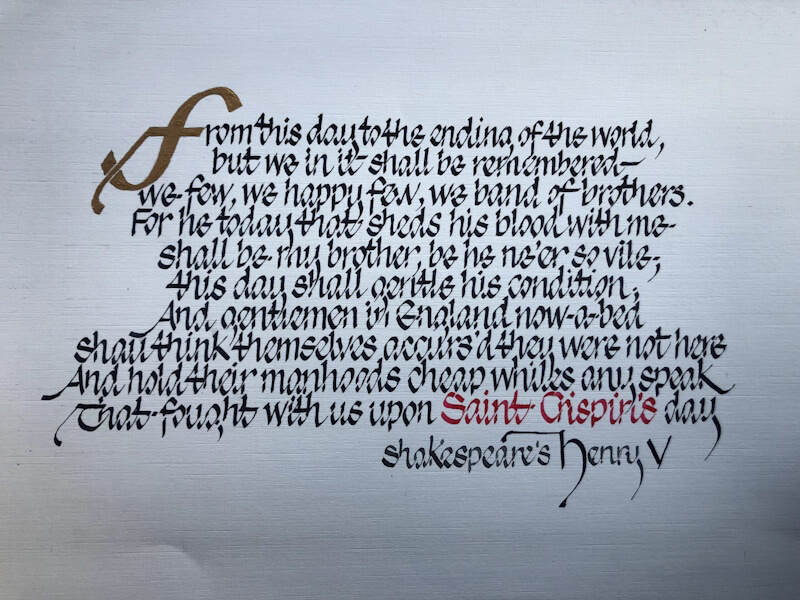 From this day to the ending of the world,
but we in it shall be remembered—
we few, we happy few, we band of brothers.
For he today that sheds his blood with me
shall be my brother, be he ne'er so vile;
this day shall gentle his condition;
And gentlemen in England now-a-bed
shall think themselves accurs'd they were not here
And hold their manhoods cheap whiles any speak
That fought with us upon Saint Crispin's day
Shakespeare's Henry V